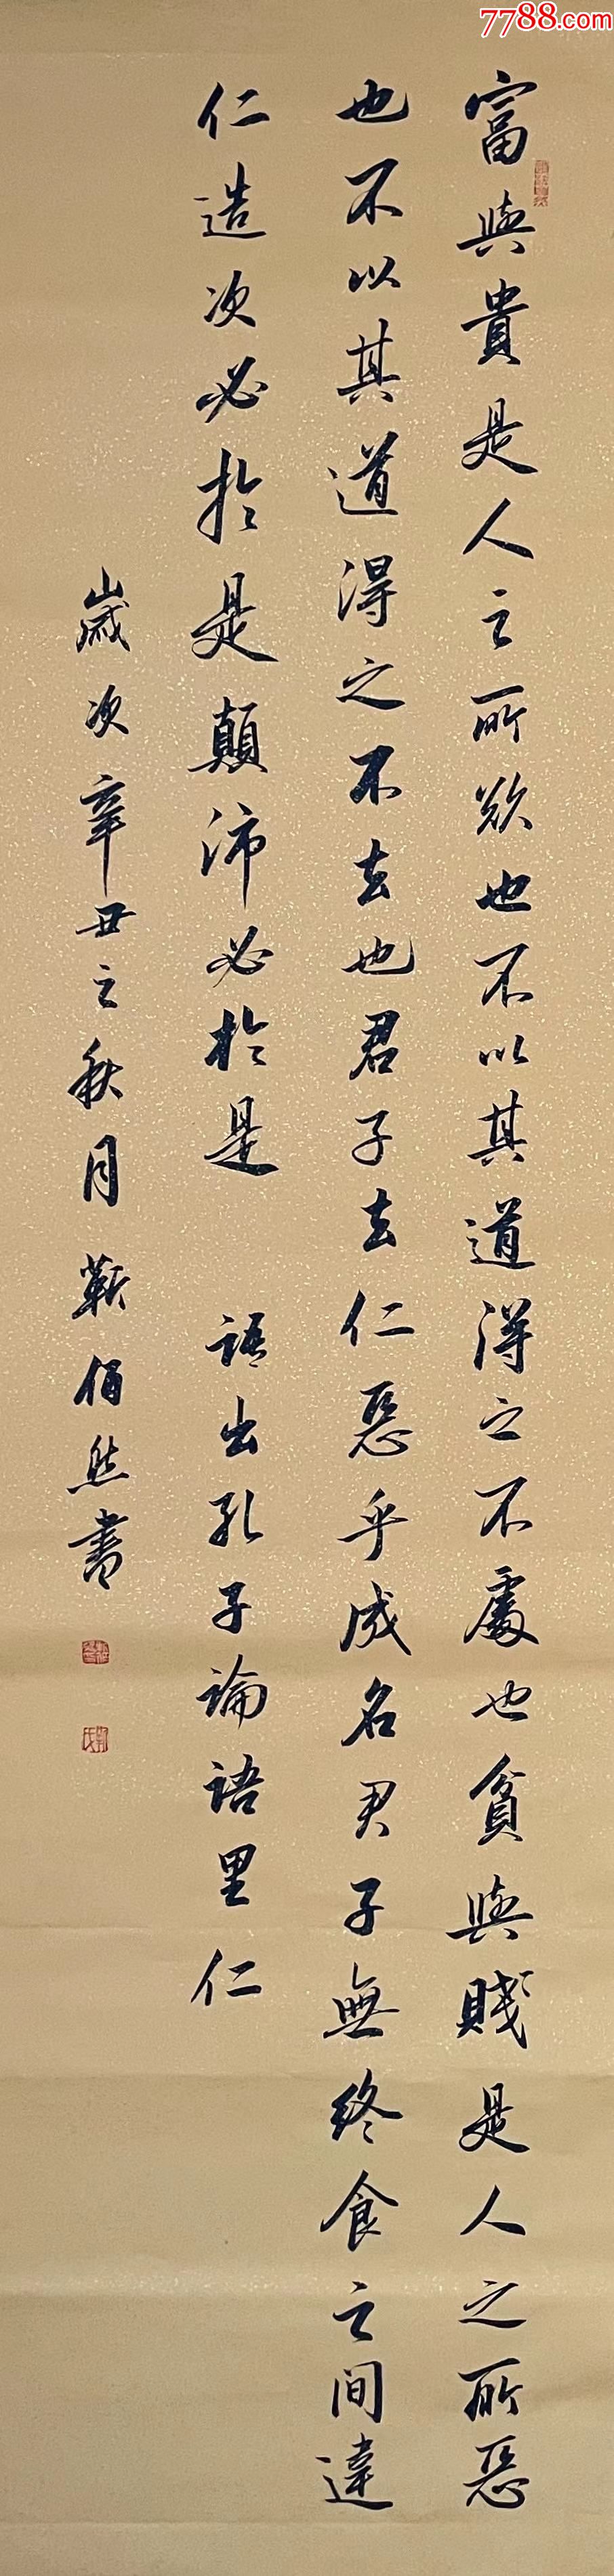 7788.com
富與貴是人之所欲也不以其道得之不處也貧與賤是人之所惡
也不以其道得之不去也君子去仁惡乎成名君子無終食之间違
仁造次必於是顛沛必於是 語出孔子論語里仁
歲次辛丑之秋月靳佰然書